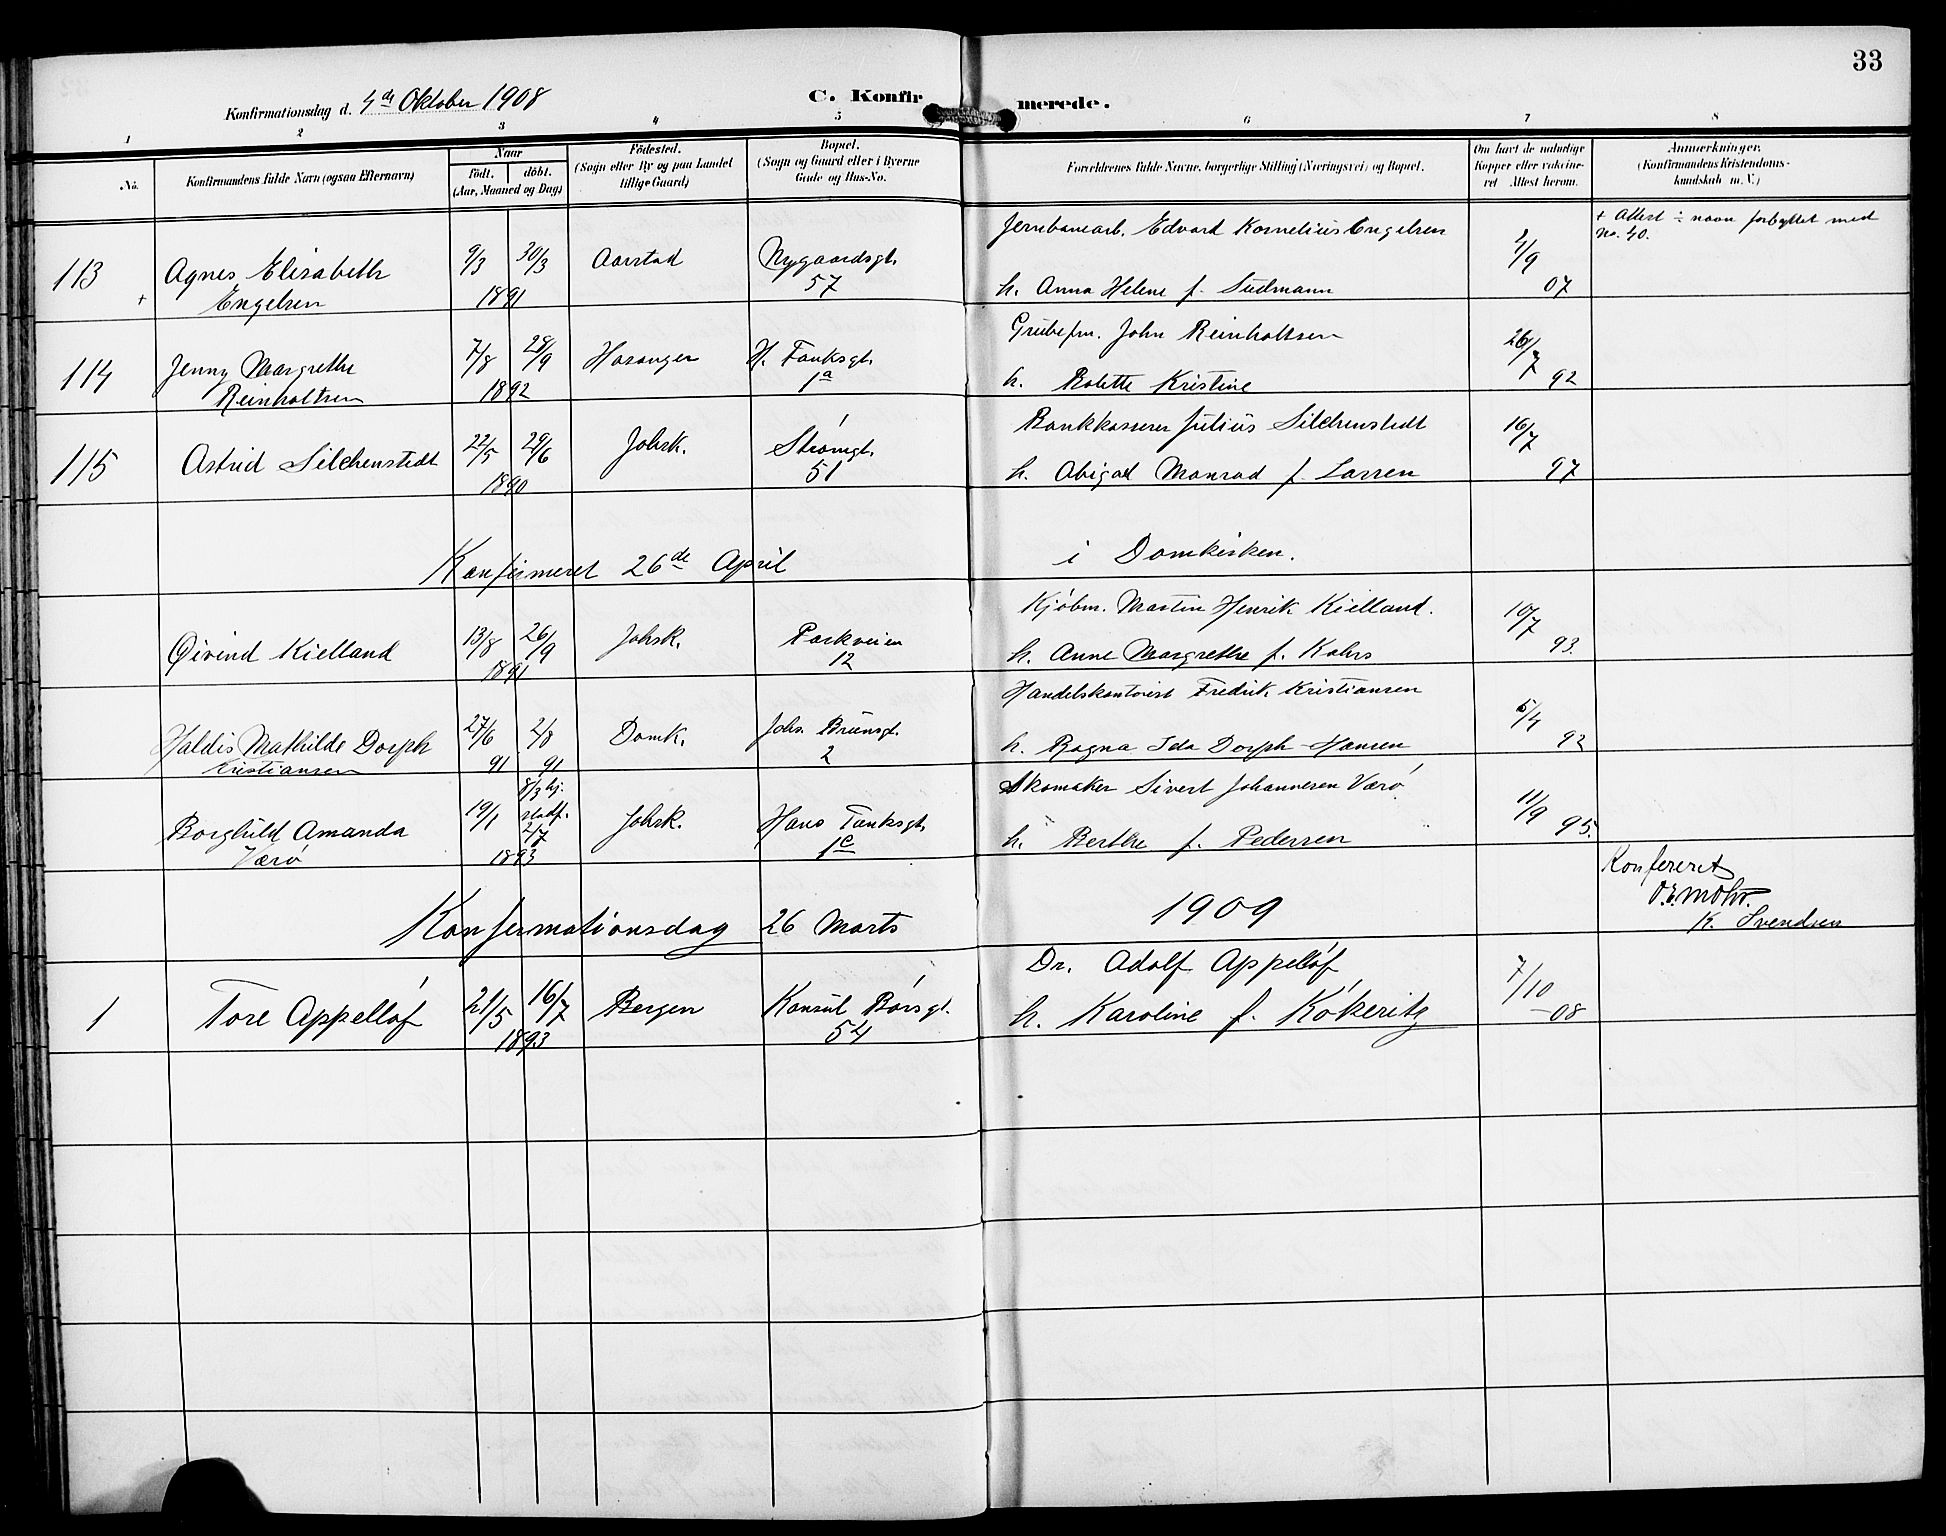 33
Konfirmationsdag d. 4de Oktober 1908
C. Konfirmerede.
1 2 3 4 5 6 7 8
No.
Konfirmandens fulde Navn (ogsaa Efternavn)
Naar
Födt. döbt.
(Aar, Maaned og Dag)
Födested.
(Sogn eller By og paa Landet
tillige Gaard)
Bopæl.
(Sogn og Gaard eller i Byerne
Gade og Hus-No.
Forældrenes fulde Navne, borgerlige Stilling (Næringsvei) og Bopæl.
Om havt de naturlige
Kopper eller vaccine-
ret Attest herom.
Anmærkninger.
(Konfirmandens Kristendoms-
kundskab m. V.)
113 + Agnes Elisabeth
Engelsen
9/3 30/3
1891
Aarstad
Nygaardsgt.
57
Jernbanearb. Edvard Kornelius Engelsen
h. Anna Helene f. Sudmann
2/9
07
+ Attest ÷ navn forbyttet med
No. 40.
114 Jenny Margrethe
Reinholtsen
7/8 28/9
1892
Haranger
H. Tanksgt.
1a
Grubefm. John Reinholtsen
h. Bolette Kristine
26/7
92
115 Astrid Silchenstedt
22/5 29/6
1890
Johsk.
Strømgt.
51
Bankkasserer Julius Silchenstedt
h. Abigael Monrad f. Larsen
16/7
97
Konfirmeret 26de April i Domkirken.
Øivind Kielland
13/8 26/9
1891
Johsk.
Parkveien
12
Kjøbm. Martin Henrik Kielland.
h. Anne Margrethe f. Kahrs
10/7
93.
Haldis Mathilde Dorph
Kristiansen
27/6 2/8
91 91
Domk.
Johs. Brunsgt.
2
Handelskontorist Fredrik Kristiansen
h. Ragna Ida Dorph-Hansen
5/4
92
Borghild Amanda
Værø
19/1 8/3 hj.
stadf.
2/7
1893
Johsk.
Hans Tanksgt.
1c
Skomaker Sivert Johannesen Værø
h. Berthe f. Pedersen
11/9
95.
Konfirmationsdag 26 Marts 1909
Konfereret
O. E. Mohr.
K. Svendsen
1 Tore Appelløf
21/5 16/7
1893
Bergen
Konsul Børsgt.
54
Dr. Adolf Appelløf
h. Karoline f. Kökeritz
7/10
-08